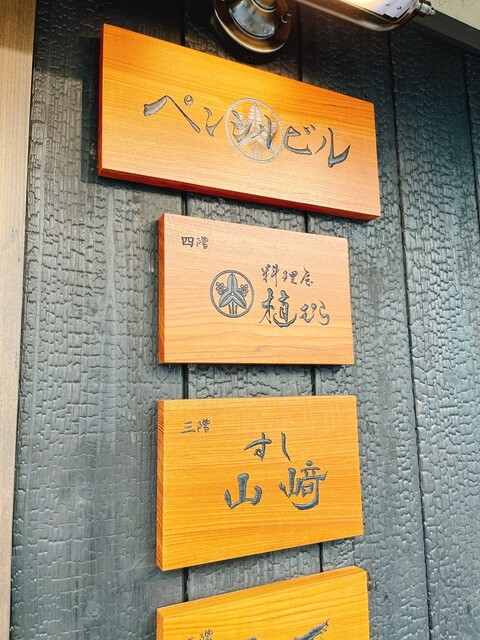 ペンシルビル
四階
料理屋
植むら
三階
すし
山﨑